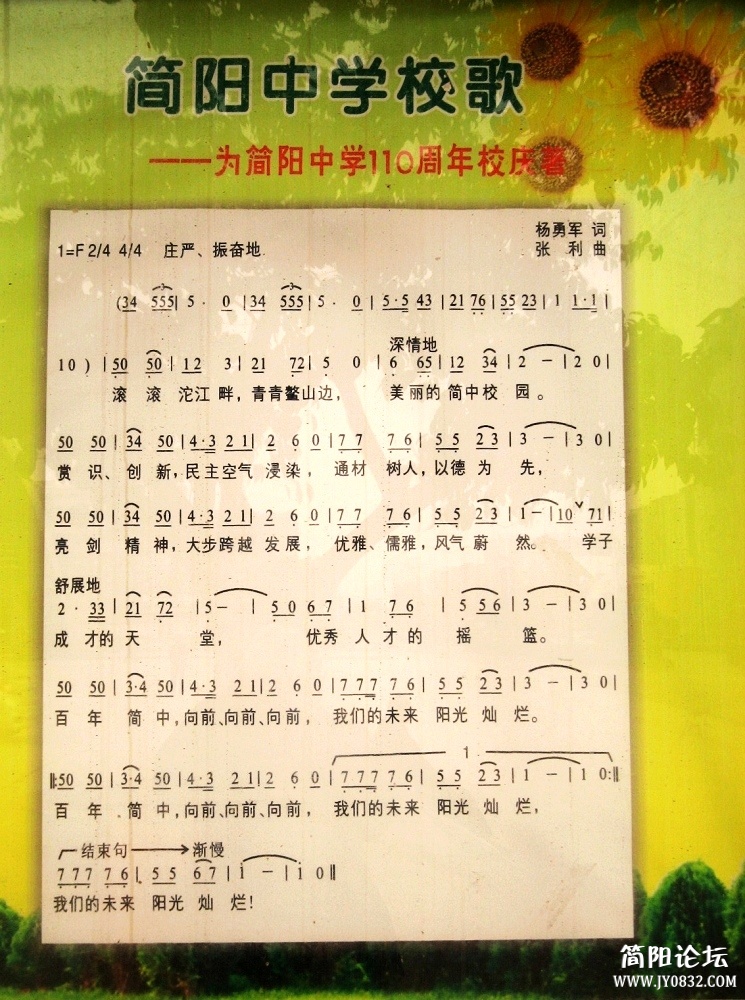 简阳中学校歌
——为简阳中学110周年校庆著
杨勇军 词
1=F 2/4 4/4 庄严、振奋地
张 利 曲
(34 555| 5 · 0 |34 555| 5 · 0 |5·5 43 |21 76 |55 23 |1 1·1|
深情地
10) |50 50 |12 3 |21 72 |5 0 |6 65 |12 34 |2 — |20|
滚 滚 沱江 畔，青青鳌山边， 美丽的 简中校 园。
50 50 |34 50 |4·3 21 |2 60 |77 76 |55 23 |3 — |30|
赏 识、创 新，民主空气 浸染，通材 树人，以德 为 先，
50 50 |34 50 |4·3 21 |2 60 |77 76 |55 23 |1— |10 ˅ 71|
亮 剑 精 神，大步跨越 发展，优雅、儒雅，风气 蔚 然。 学子
舒展地
2 · 33 |21 72 |5— |50 67 |1 76 |5 56 |3 — |30|
成 才的 天 堂， 优秀 人 才 的 摇 篮。
50 50 |3·4 50 |4·3 21 |2 60 |777 76 |55 23 |3 — |30|
百 年 简 中，向前、向前、向前，我们的未来 阳光 灿 烂。
1
‖:50 50 |3·4 50 |4·3 21 |2 60 |777 76 |55 23 |1 — |10:‖
百 年 简 中，向前、向前、向前，我们的未来 阳光 灿 烂，
结束句 → 渐慢
777 76 |55 67 |1 — |10‖
我们的未来 阳光 灿 烂！
简阳论坛
WWW.JY0832.COM